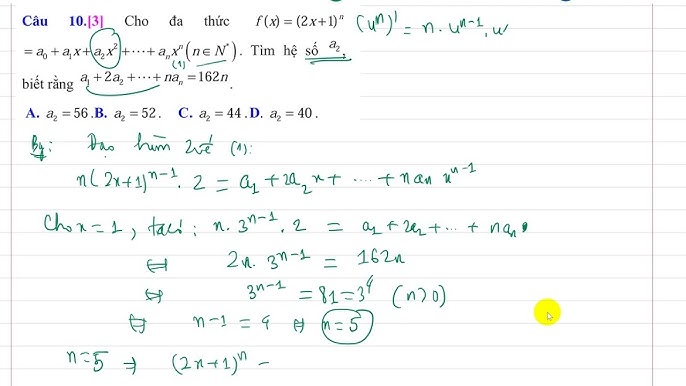 Câu 10.[3] Cho đa thức f(x) = (2x+1)ⁿ (uⁿ)' = n. uⁿ⁻¹. u'
= a₀ + a₁x + a₂x² + ⋯ + aₙxⁿ (n ∈ N*). Tìm hệ số a₂,
(1)
biết rằng a₁ + 2a₂ + ⋯ + naₙ = 162n.
A. a₂ = 56. B. a₂ = 52. C. a₂ = 44. D. a₂ = 40.
Đạo hàm 2 vế (1):
n(2x+1)ⁿ⁻¹. 2 = a₁ + 2a₂x + ⋯ + naₙxⁿ⁻¹
Cho x = 1, ta có: n. 3ⁿ⁻¹. 2 = a₁ + 2a₂ + ⋯ + naₙ
⇔ 2n. 3ⁿ⁻¹ = 162n
⇔ 3ⁿ⁻¹ = 81 = 3⁴ (n>0)
⇔ n-1 = 4 ⇔ n = 5
n = 5 ⇒ (2x+1)ⁿ =